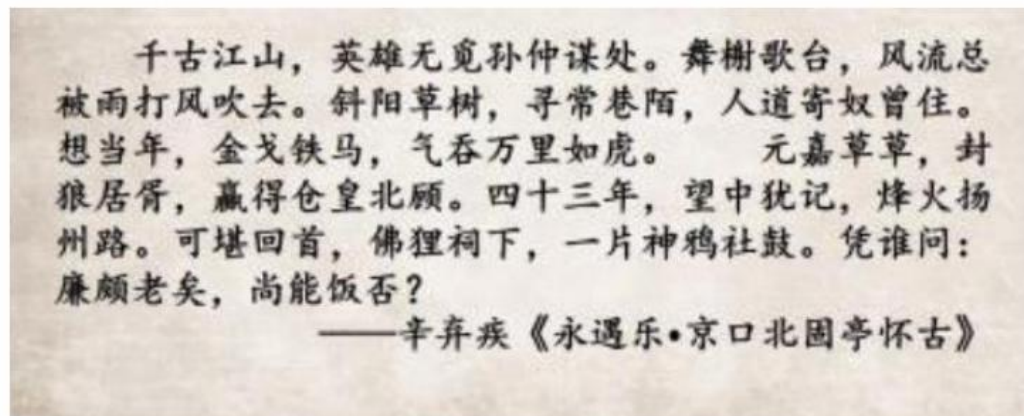 千古江山，英雄无觅孙仲谋处。舞榭歌台，风流总
被雨打风吹去。斜阳草树，寻常巷陌，人道寄奴曾住。
想当年，金戈铁马，气吞万里如虎。　　元嘉草草，封
狼居胥，赢得仓皇北顾。四十三年，望中犹记，烽火扬
州路。可堪回首，佛狸祠下，一片神鸦社鼓。凭谁问：
廉颇老矣，尚能饭否？
——辛弃疾《永遇乐•京口北固亭怀古》